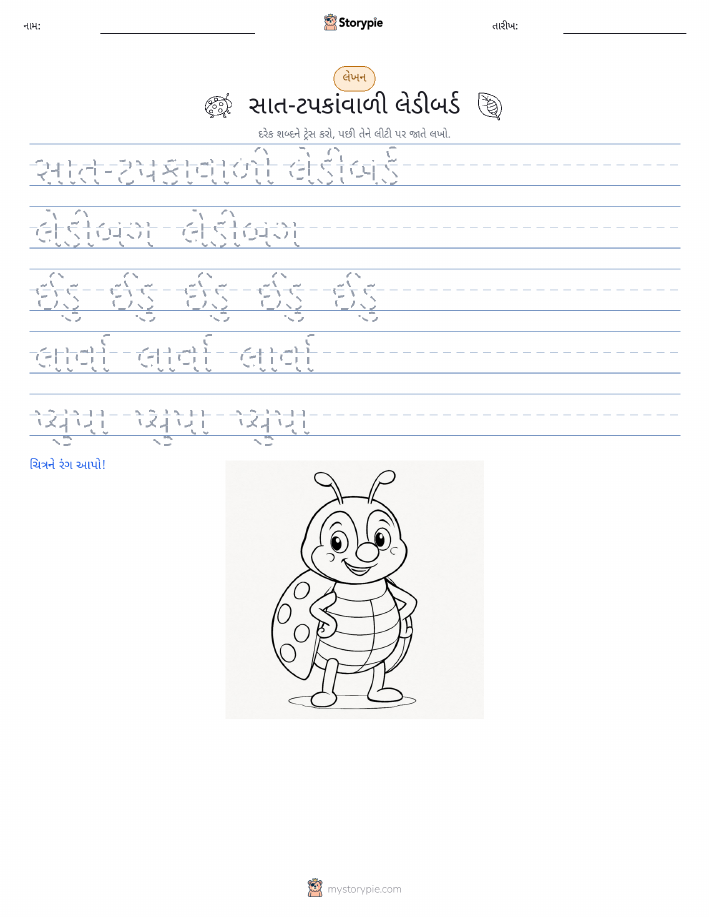 નામ:
Storypie
તારીખ:
લેખન
સાત-ટપકાંવાળી લેડીબર્ડ
દરેક શબ્દને ટ્રેસ કરો, પછી તેને લીટી પર જાતે લખો.
સાત-ટપકાંવાળી લેડીબર્ડ
લેડીબગ લેડીબગ
ઈંડુ ઈંડુ ઈંડુ ઈંડુ ઈંડુ
લાર્વા લાર્વા લાર્વા
પ્યુપા પ્યુપા પ્યુપા
ચિત્રને રંગ આપો!
mystorypie.com